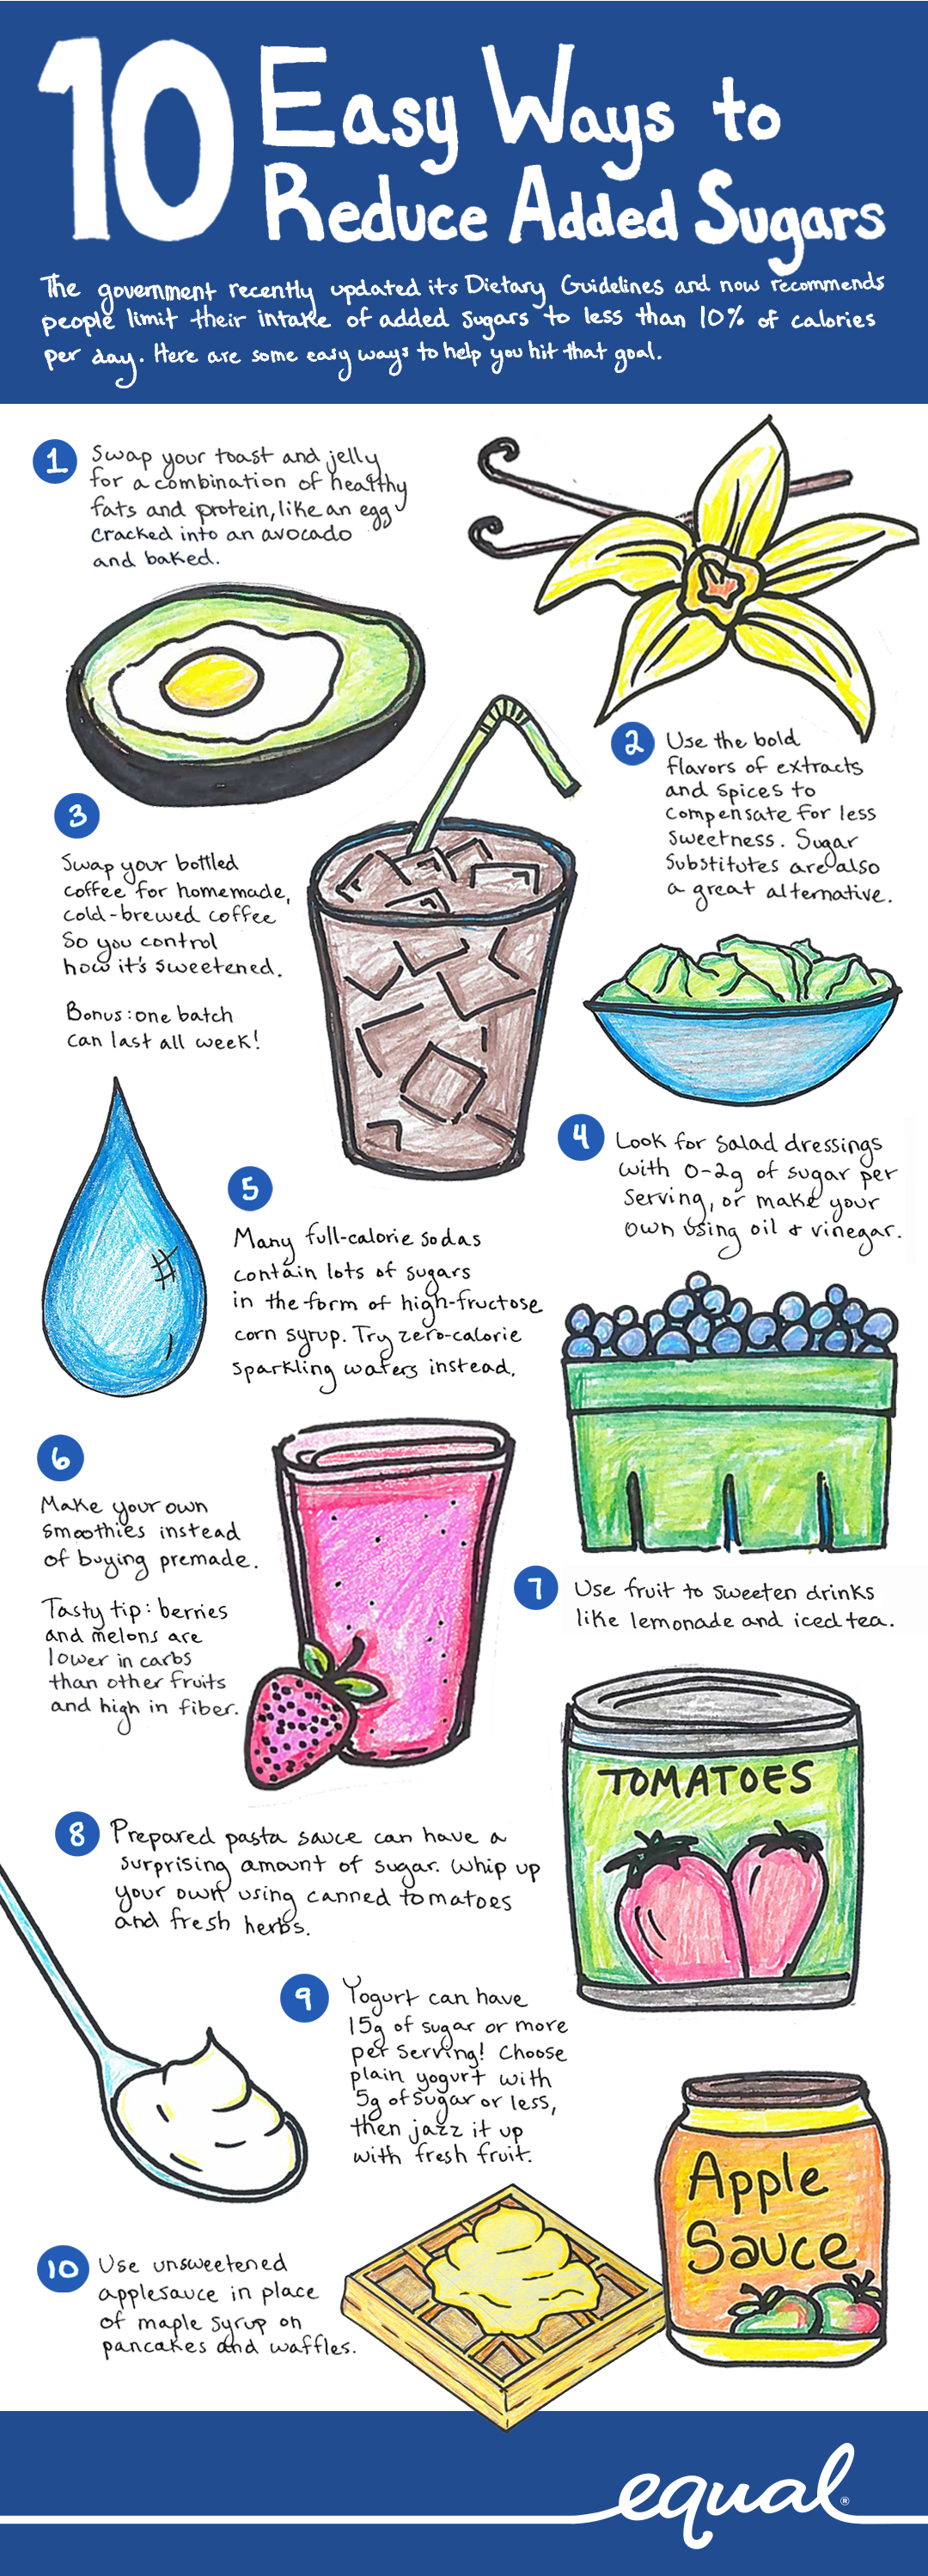 10 Easy Ways to
Reduce Added Sugars
The government recently updated its Dietary Guidelines and now recommends
people limit their intake of added sugars to less than 10% of calories
per day. Here are some easy ways to help you hit that goal.
1 Swap your toast and jelly
for a combination of healthy
fats and protein, like an egg
cracked into an avocado
and baked.
2 Use the bold
flavors of extracts
and spices to
compensate for less
sweetness. Sugar
substitutes are also
a great alternative.
3
Swap your bottled
coffee for homemade,
cold-brewed coffee
so you control
how it's sweetened.
Bonus: one batch
can last all week!
4 Look for salad dressings
with 0-2g of sugar per
serving, or make your
own using oil & vinegar.
5
Many full-calorie sodas
contain lots of sugars
in the form of high-fructose
corn syrup. Try zero-calorie
sparkling waters instead.
6
Make your own
smoothies instead
of buying premade.
Tasty tip: berries
and melons are
lower in carbs
than other fruits
and high in fiber.
7 Use fruit to sweeten drinks
like lemonade and iced tea.
TOMATOES
8 Prepared pasta sauce can have a
surprising amount of sugar. Whip up
your own using canned tomatoes
and fresh herbs.
9 Yogurt can have
15g of sugar or more
per serving! Choose
plain yogurt with
5g of sugar or less,
then jazz it up
with fresh fruit.
Apple
Sauce
10 Use unsweetened
applesauce in place
of maple syrup on
pancakes and waffles.
equal®